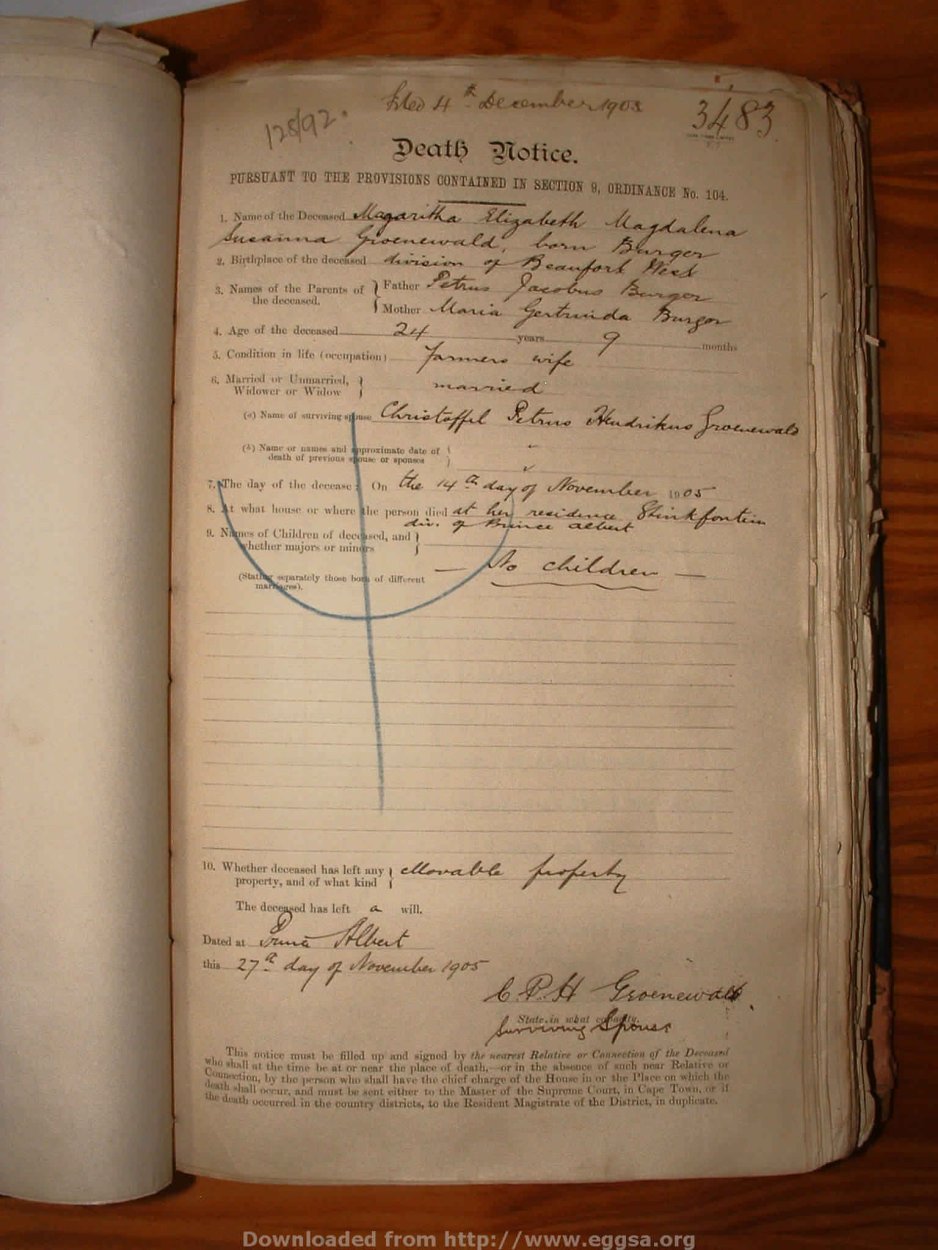 filed 4th December 1905
3483
128/92.
Death Notice.
PURSUANT TO THE PROVISIONS CONTAINED IN SECTION 9, ORDINANCE No. 104.
1. Name of the Deceased Magaritha Elizabeth Magdalena
Susanna Groenewald, born Burger
2. Birthplace of the deceased division of Beaufort West
3. Names of the Parents of the deceased. Father Petrus Jacobus Burger
Mother Maria Gertruida Burger
4. Age of the deceased 24 years 9 months
5. Condition in life (occupation) farmers wife
6. Married or Unmarried, Widower or Widow married
(a) Name of surviving spouse Christoffel Petrus Hendrikus Groenewald
(b) Name or names and approximate date of death of previous spouse or spouses "
7. The day of the decease: On the 14th day of November 1905
8. At what house or where the person died at her residence Stinkfontein
div. of Prince Albert
9. Names of Children of deceased, and whether majors or minors
— No children —
(Stating separately those born of different marriages).
10. Whether deceased has left any property, and of what kind Movable property
The deceased has left a will.
Dated at Prince Albert
this 27th day of November 1905
C P H Groenewald.
State in what capacity.
Surviving Spouse
This notice must be filled up and signed by the nearest Relative or Connection of the Deceased
who shall at the time be at or near the place of death,—or in the absence of such near Relative or
Connection, by the person who shall have the chief charge of the House in or the Place on which the
death shall occur, and must be sent either to the Master of the Supreme Court, in Cape Town, or if
the death occurred in the country districts, to the Resident Magistrate of the District, in duplicate.
Downloaded from http://www.eggsa.org